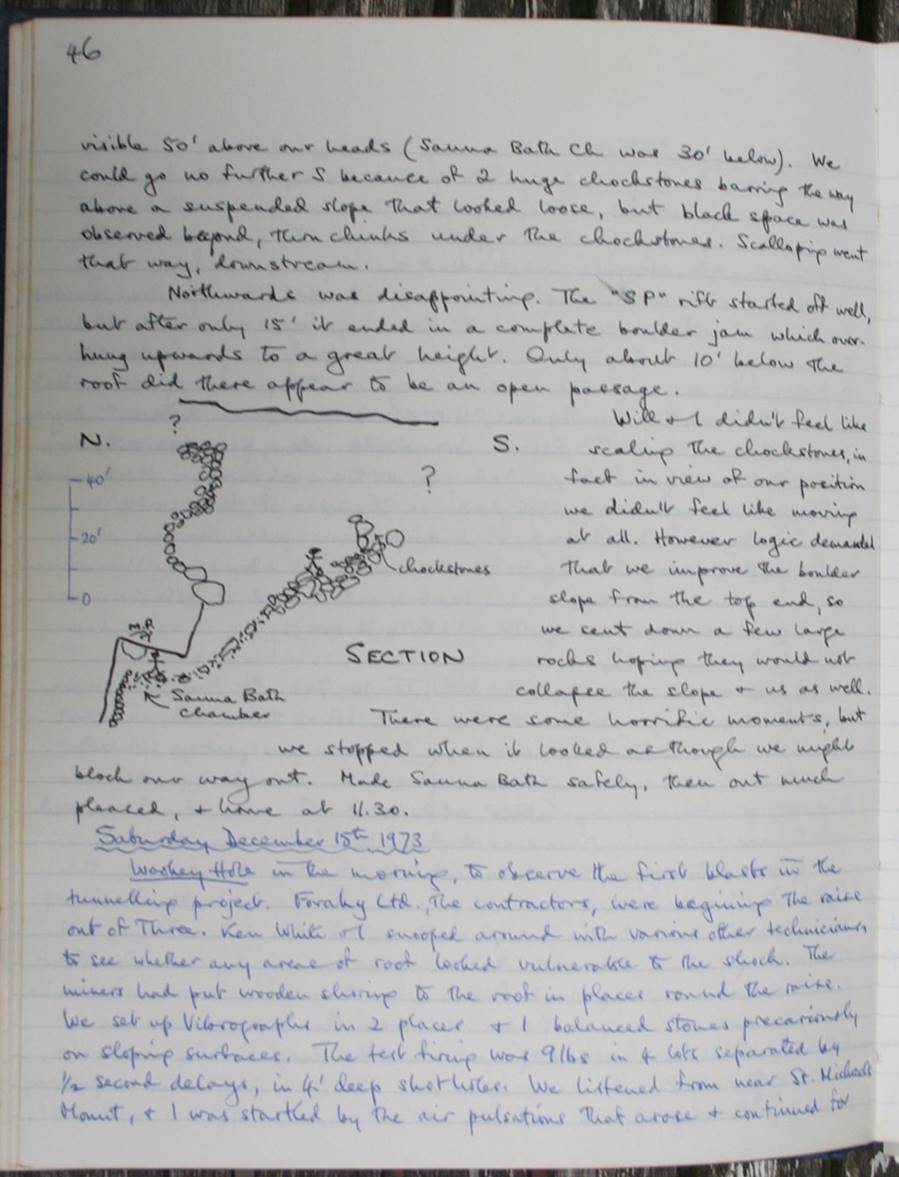 46
visible 50' above our heads (Sauna Bath Ch was 30' below). We
could go no further S because of 2 huge chockstones barring the way
above a suspended slope that looked loose, but black space was
observed beyond, thru chinks under the chockstones. Scalloping went
that way, downstream.
Northwards was disappointing. The "SP" rift started off well,
but after only 15' it ended in a complete boulder jam which over-
hung upwards to a great height. Only about 10' below the
roof did there appear to be an open passage.
Will & I didn't feel like
scaling the chockstones, in
fact in view of our position
we didn't feel like moving
at all. However logic demanded
that we improve the boulder
slope from the top end, so
we sent down a few large
rocks hoping they would not
collapse the slope & us as well.
There were some horrific moments, but
we stopped when it looked as though we might
block our way out. Made Sauna Bath safely, then out much
pleased, & home at 11.30.
N.
?
S.
?
40'
20'
0
chockstones
M.P.
SECTION
Sauna Bath
chamber
Saturday December 15th 1973
Wookey Hole in the morning, to observe the first blasts in the
tunnelling project. Foraky Ltd., the contractors, were begining the raise
out of Three. Ken White & I snooped around with various other technicians,
to see whether any areas of roof looked vulnerable to the shock. The
miners had put wooden shoring to the roof in places round the raise.
We set up Vibrographs in 2 places & I balanced stones precariously
on sloping surfaces. The test firing was 9 lbs in 4 lots separated by
1/2 second delays, in 4' deep shotholes. We listened from near St. Michaels
Mount, & I was startled by the air pulsations that arose & continued for